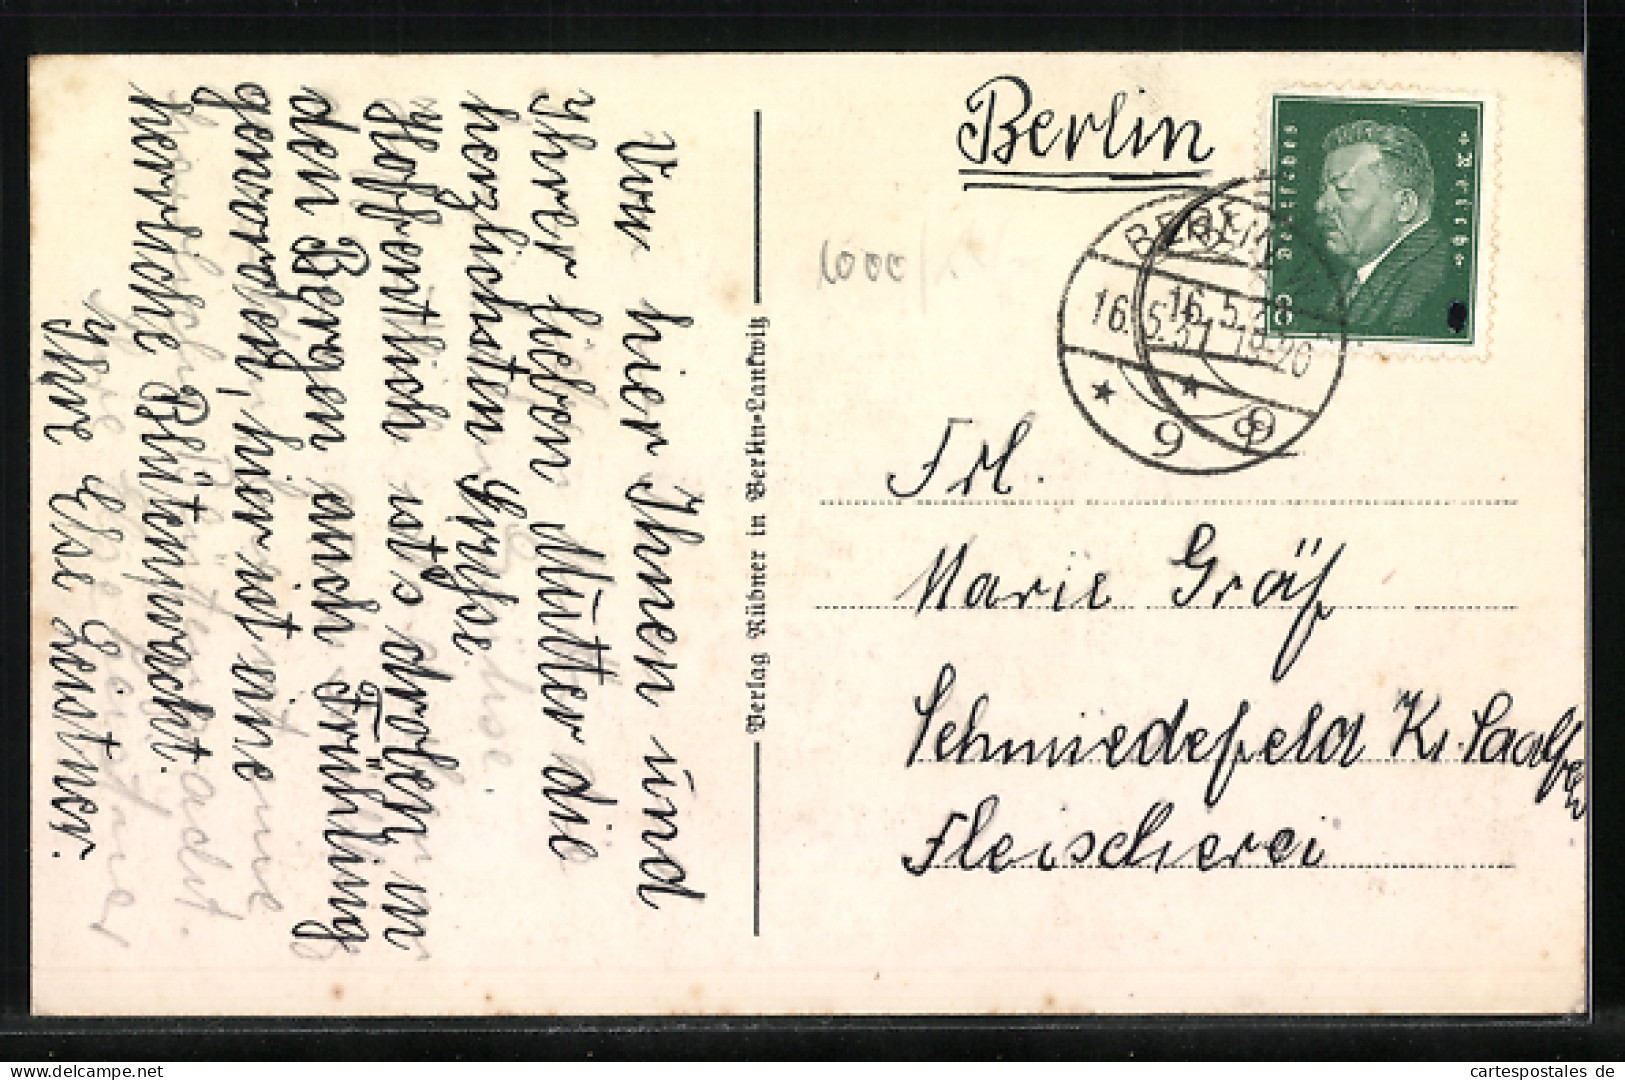 Berlin
Deutsches Reich
8
BERLIN
16.5.31 19-20
9
BERLIN
16.5.31
9
1000/
Frl.
Marie Gräf
Schmiedefeld Kr. Saalfeld
Fleischerei
Verlag Rübner in Berlin-Lankwitz
Von hier Ihnen und
Ihrer lieben Mutter die
herzlichsten Grüße.
Hoffentlich ists droben in
den Bergen auch Frühling
geworden, hier ist eine
herrliche Blütenpracht.
Ihre Else
cartespostales de